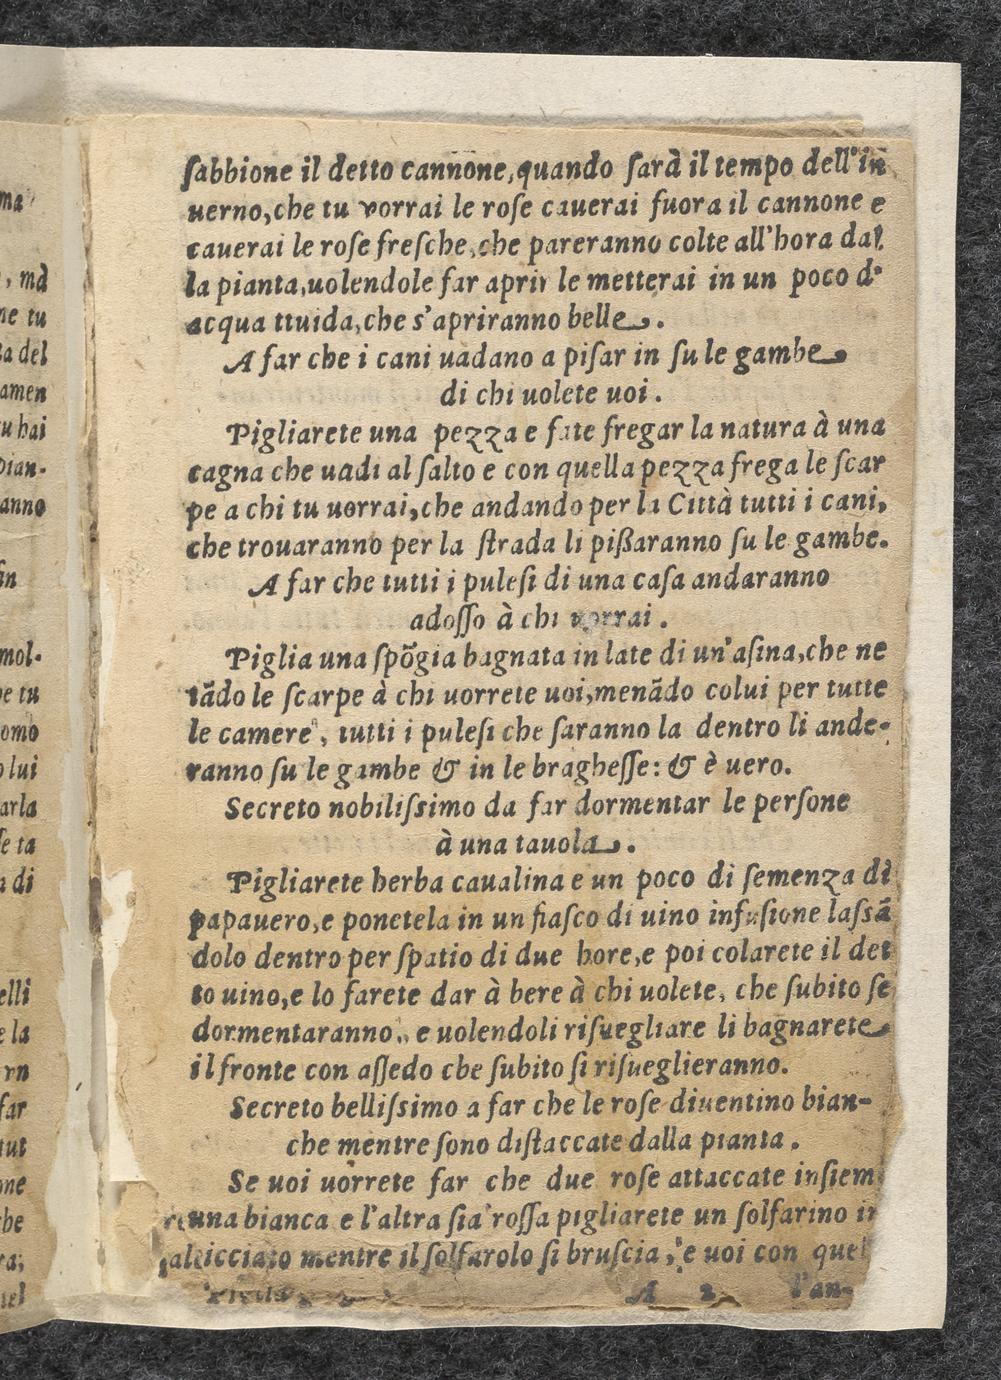 ma
, mà
ne tu
ta del
amen
tu hai
pian-
anno
mol-
pe tu
omo
o lui
arla
se ta
a di
elli
e la
vn
far
tut
one
che
ra;
tel
sabbione il detto cannone, quando sarà il tempo dell'in
uerno, che tu vorrai le rose cauerai fuora il cannone e
cauerai le rose fresche, che pareranno colte all'hora dal
la pianta, uolendole far aprir le metterai in un poco d'
acqua ttuida, che s'apriranno belle.
A far che i cani uadano a pisar in su le gambe
di chi uolete uoi.
Pigliarete una pezza e fate fregar la natura à una
cagna che uadi al salto e con quella pezza frega le scar
pe a chi tu uorrai, che andando per la Città tutti i cani,
che trouaranno per la strada li pißaranno su le gambe.
A far che tutti i pulesi di una casa andaranno
adosso à chi vorrai.
Piglia una spõgia bagnata in late di un'asina, che ne
tãdo le scarpe à chi uorrete uoi, menãdo colui per tutte
le camere, tutti i pulesi che saranno la dentro li ande-
ranno su le gambe & in le braghesse: & è uero.
Secreto nobilissimo da far dormentar le persone
à una tauola.
Pigliarete herba caualina e un poco di semenza di
papauero, e ponetela in un fiasco di uino infusione lassã
dolo dentro per spatio di due hore, e poi colarete il det
to uino, e lo farete dar à bere à chi uolete, che subito se
dormentaranno, e uolendoli risuegliare li bagnarete
il fronte con assedo che subito si risueglieranno.
Secreto bellissimo a far che le rose diuentino bian-
che mentre sono distaccate dalla pianta.
Se uoi uorrete far che due rose attaccate insiem
una bianca e l'altra sia rossa pigliarete un solfarino in
mentre il solfarolo si bruscia, e uoi con quel
A 2 l'an-